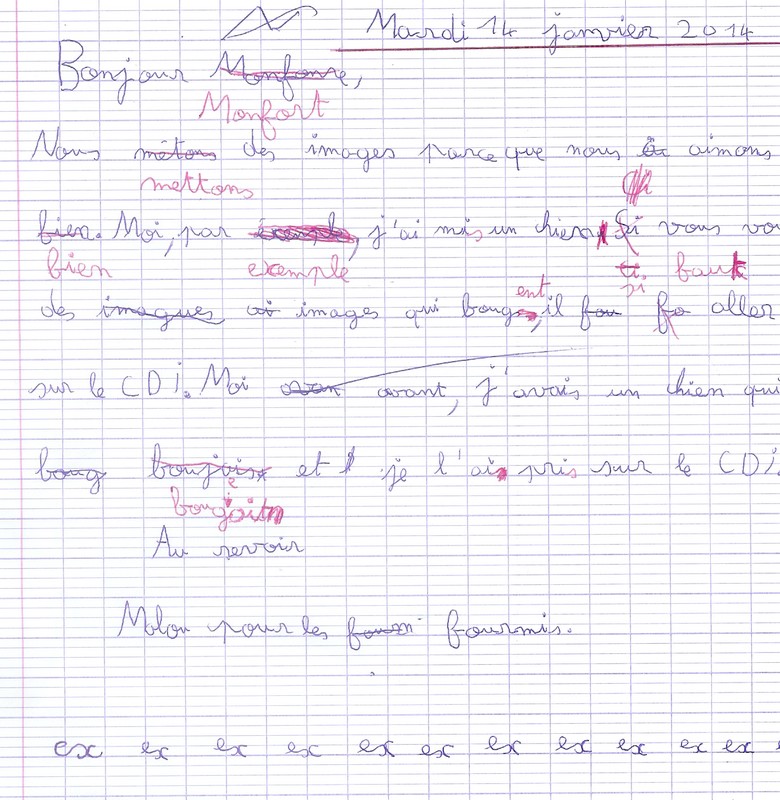 Mardi 14 janvier 2014
Bonjour Monfore,
Monfort
Nous métons des images parce que nous aimons
mettons
bien. Moi, par j'ai mis un chien, si vous vou
bien exemple si faut
des imagues images qui bougent, il fau fa aller
sur le CDi. Moi avant, j'avais un chien qui
boug boujais et je l'ai pris sur le CDi.
boujait
Au revoir
Molon pour les fourmis.
ex ex ex ex ex ex ex ex ex ex ex